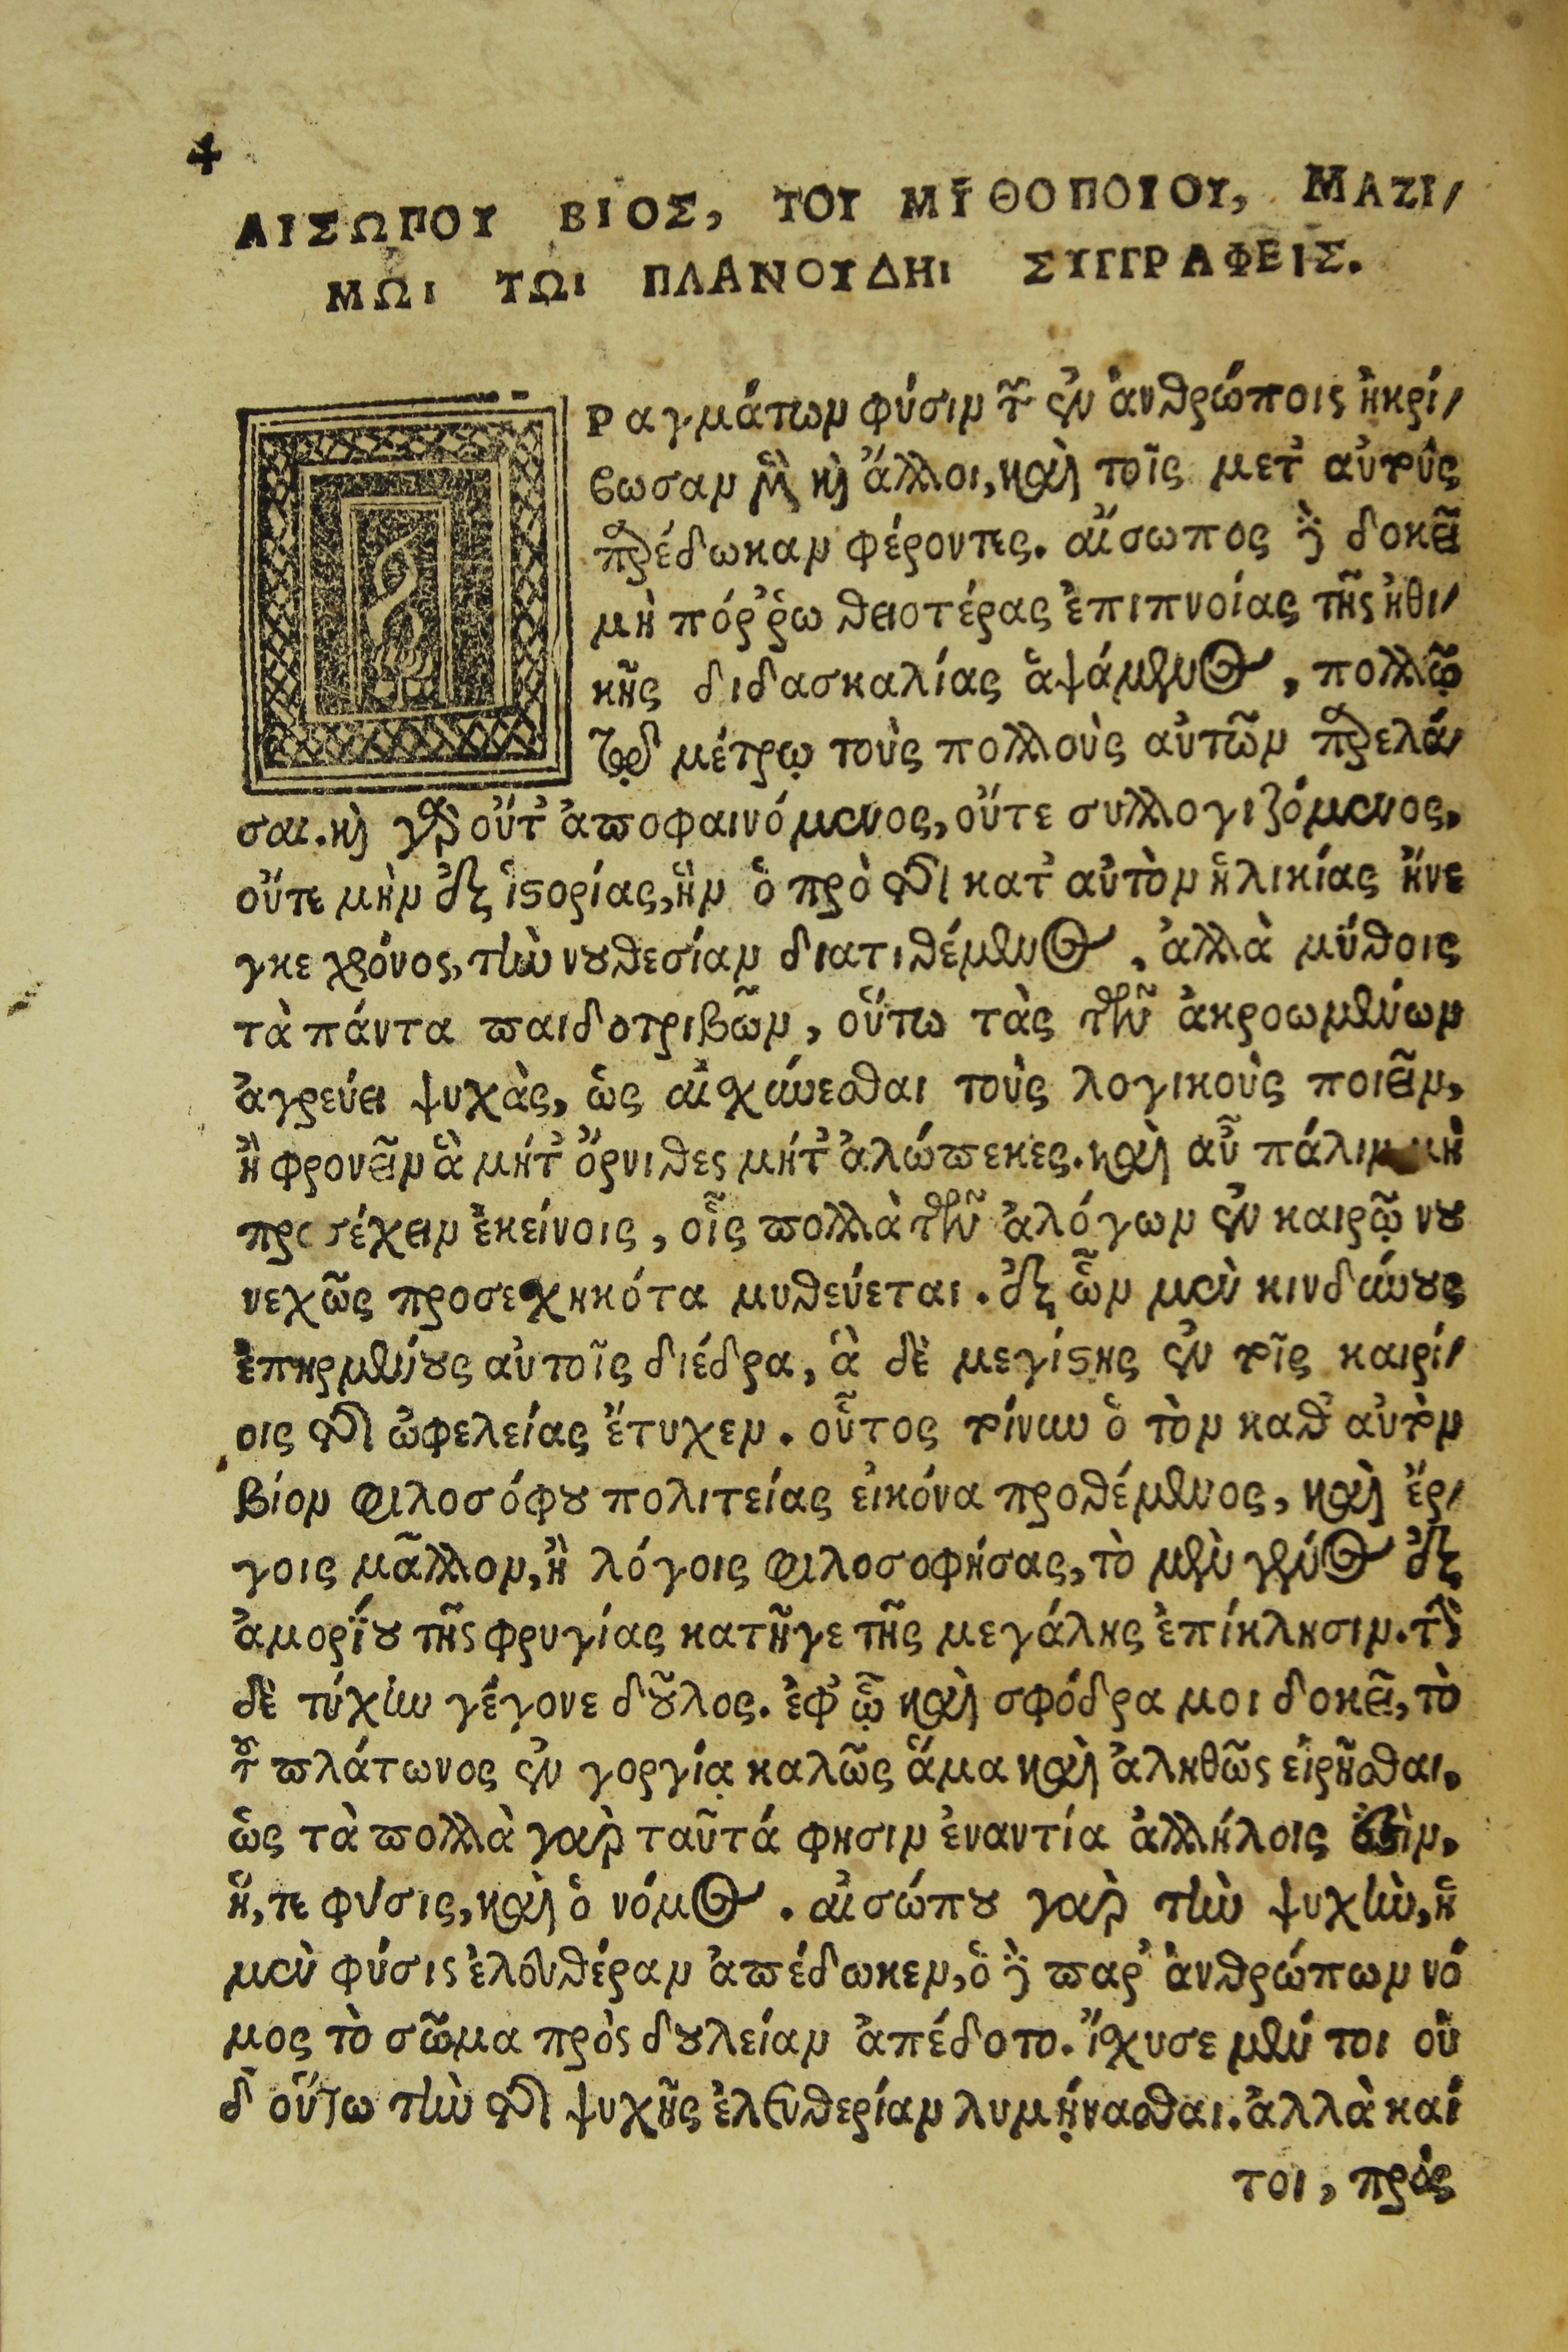 4
ΑΙΣΩΠΟΥ ΒΙΟΣ, ΤΟΥ ΜΥΘΟΠΟΙΟΥ, ΜΑΞΙ/
ΜΩΙ ΤΩΙ ΠΛΑΝΟΥΔΗΙ ΣΥΓΓΡΑΦΕΙΣ.
Ραγμάτων φύσιν τῶν ἐν ἀνθρώποις ἠκρί/
βωσαν μὲν καὶ ἄλλοι, καὶ τοῖς μετ' αὐτοὺς
παρέδωκαν φέροντες. αἴσωπος δὲ δοκεῖ
μὴ πόῤῥω θειοτέρας ἐπιπνοίας τῆς ἠθι/
κῆς διδασκαλίας ἁψάμενος, πολλῷ
τῷ μέτρῳ τοὺς πολλοὺς αὐτῶν παρελά/
σαι. καὶ γὰρ οὔτ' ἀποφαινόμενος, οὔτε συλλογιζόμενος,
οὔτε μὴν ἐξ ἱστορίας, ἣν ὁ πρὸ τῆς κατ' αὐτὸν ἡλικίας ἤνε
γκε χρόνος, τὴν νουθεσίαν διατιθέμενος, ἀλλὰ μύθοις
τὰ πάντα παιδοτριβῶν, οὕτω τὰς τῶν ἀκροωμένων
ἀγρεύει ψυχὰς, ὡς αἰσχύνεσθαι τοὺς λογικοὺς ποιεῖν,
ἢ φρονεῖν ἃ μήτ' ὄρνιθες μήτ' ἀλώπεκες. καὶ αὖ πάλιν μὴ
προσέχειν ἐκείνοις, οἷς πολλὰ τῶν ἀλόγων ἐν καιρῷ νου
νεχῶς προσεχηκότα μυθεύεται. ἐξ ὧν μὲν κινδύνους
ἐπηρμένους αὐτοῖς διέδρα, ἃ δὲ μεγίστης ἐν τοῖς καιρί/
οις τῆς ὠφελείας ἔτυχεν. οὗτος τοίνυν ὁ τὸν καθ' αὑτὸν
βίον φιλοσόφου πολιτείας εἰκόνα προθέμενος, καὶ ἔρ/
γοις μᾶλλον, ἢ λόγοις φιλοσοφήσας, τὸ μὲν γένος ἐξ
ἀμορίου τῆς φρυγίας κατῆγε τῆς μεγάλης ἐπίκλησιν. τὴν
δὲ τύχην γέγονε δοῦλος. ἐφ' ᾧ καὶ σφόδρα μοι δοκεῖ, τὸ
τοῦ πλάτωνος ἐν γοργίᾳ καλῶς ἅμα καὶ ἀληθῶς εἰρῆσθαι.
ὡς τὰ πολλὰ γὰρ ταῦτά φησιν ἐναντία ἀλλήλοις ἐστὶν,
ἥ, τε φύσις, καὶ ὁ νόμος. αἰσώπου γὰρ τὴν ψυχὴν, ἡ
μὲν φύσις ἐλευθέραν ἀπέδωκεν, ὁ δὲ παρ' ἀνθρώπων νό
μος τὸ σῶμα πρὸς δουλείαν ἀπέδοτο. ἴσχυσε μέν τοι οὐ
δ' οὕτω τὴν τῆς ψυχῆς ἐλευθερίαν λυμήνασθαι. ἀλλὰ καί
τοι, πρὸς